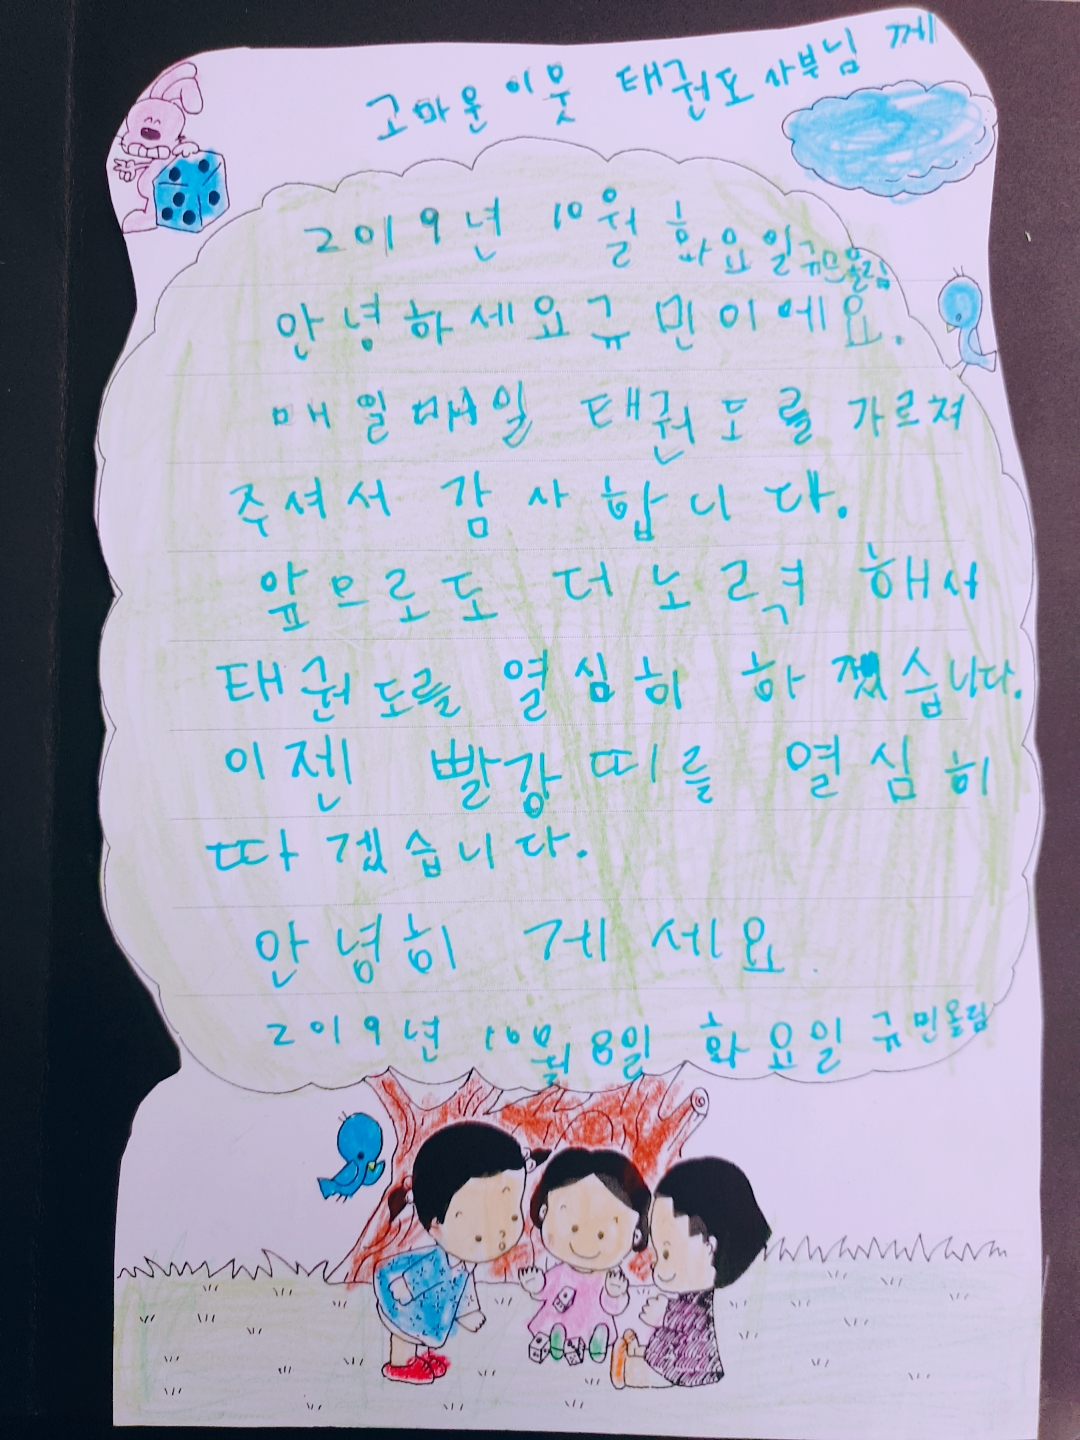 고마운 이웃 태권도 사부님 께
2019년 10월 화요일 규민올림
안녕하세요 규민이에요.
매일매일 태권도를 가르져
주셔서 감사합니다.
앞으로도 더 노력 해서
태권도를 열심히 하겠습니다.
이젠 빨강 띠를 열심히
따겠습니다.
안녕히 게세요.
2019년 10월 8일 화요일 규민올림